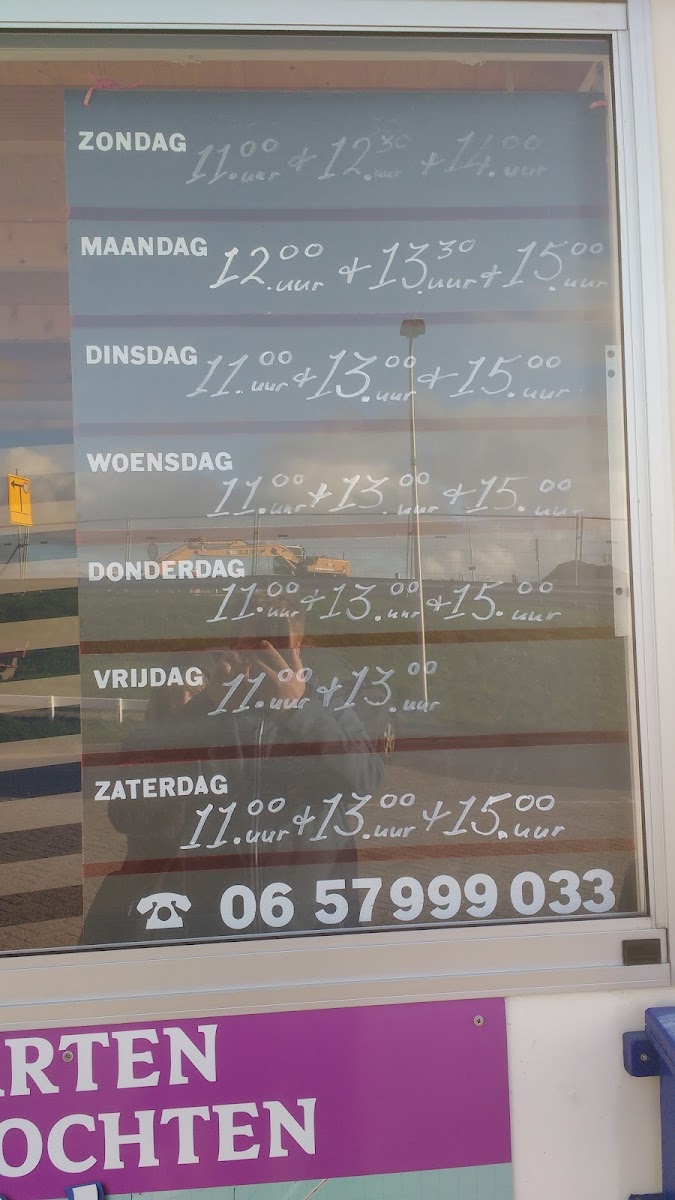 ZONDAG 11.00 uur + 12.30 uur + 14.00 uur
MAANDAG 12.00 uur + 13.30 uur + 15.00 uur
DINSDAG 11.00 uur + 13.00 uur + 15.00 uur
WOENSDAG 11.00 uur + 13.00 uur + 15.00 uur
DONDERDAG 11.00 uur + 13.00 uur + 15.00 uur
VRIJDAG 11.00 uur + 13.00 uur
ZATERDAG 11.00 uur + 13.00 uur + 15.00 uur
☎ 06 57999033
ARTEN
OCHTEN